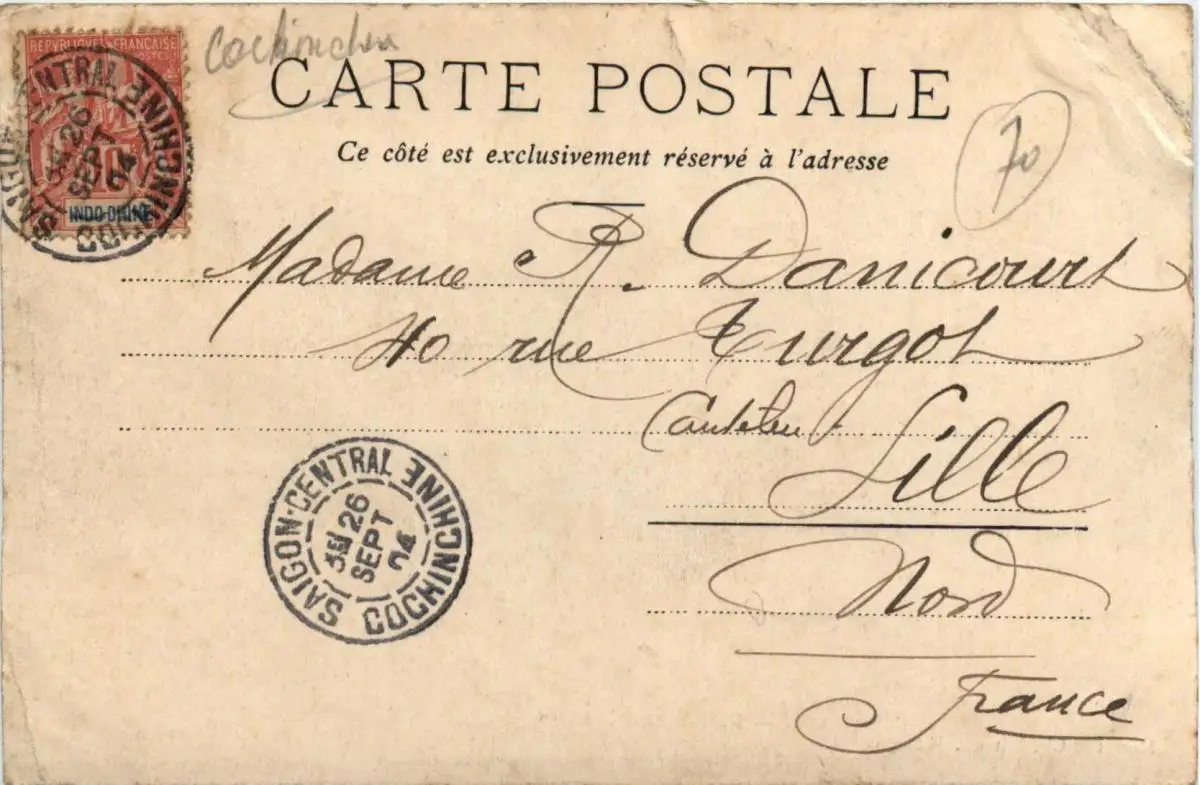 REPUBLIQUE FRANÇAISE
POSTES
10
INDO-CHINE
SAIGON-CENTRAL COCHINCHINE
26
SEPT
04
CARTE POSTALE
70
Ce côté est exclusivement réservé à l'adresse
Madame R. Danicourt
40 rue Turgot
Canteleu
Lille
Nord
France
SAIGON-CENTRAL COCHINCHINE
26
SEPT
04